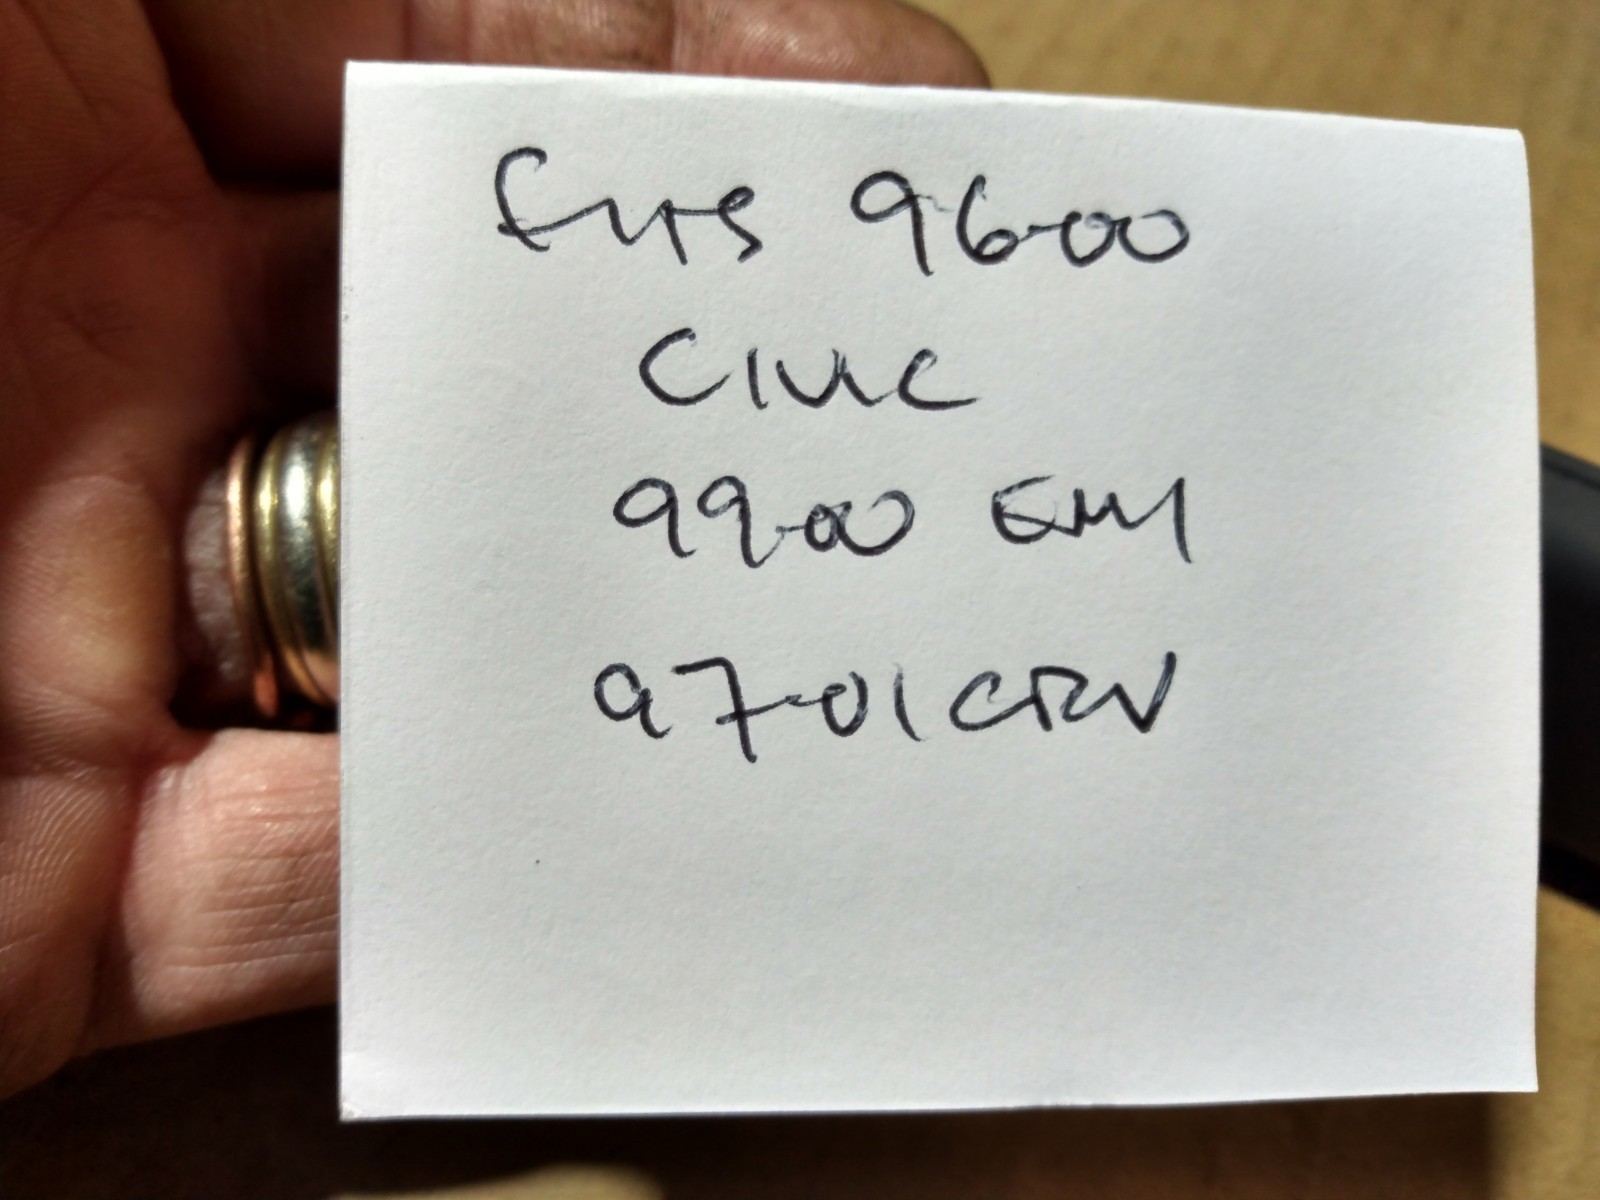 FITS 96-00
CIVIC
99-00 EM1
97-01 CRV